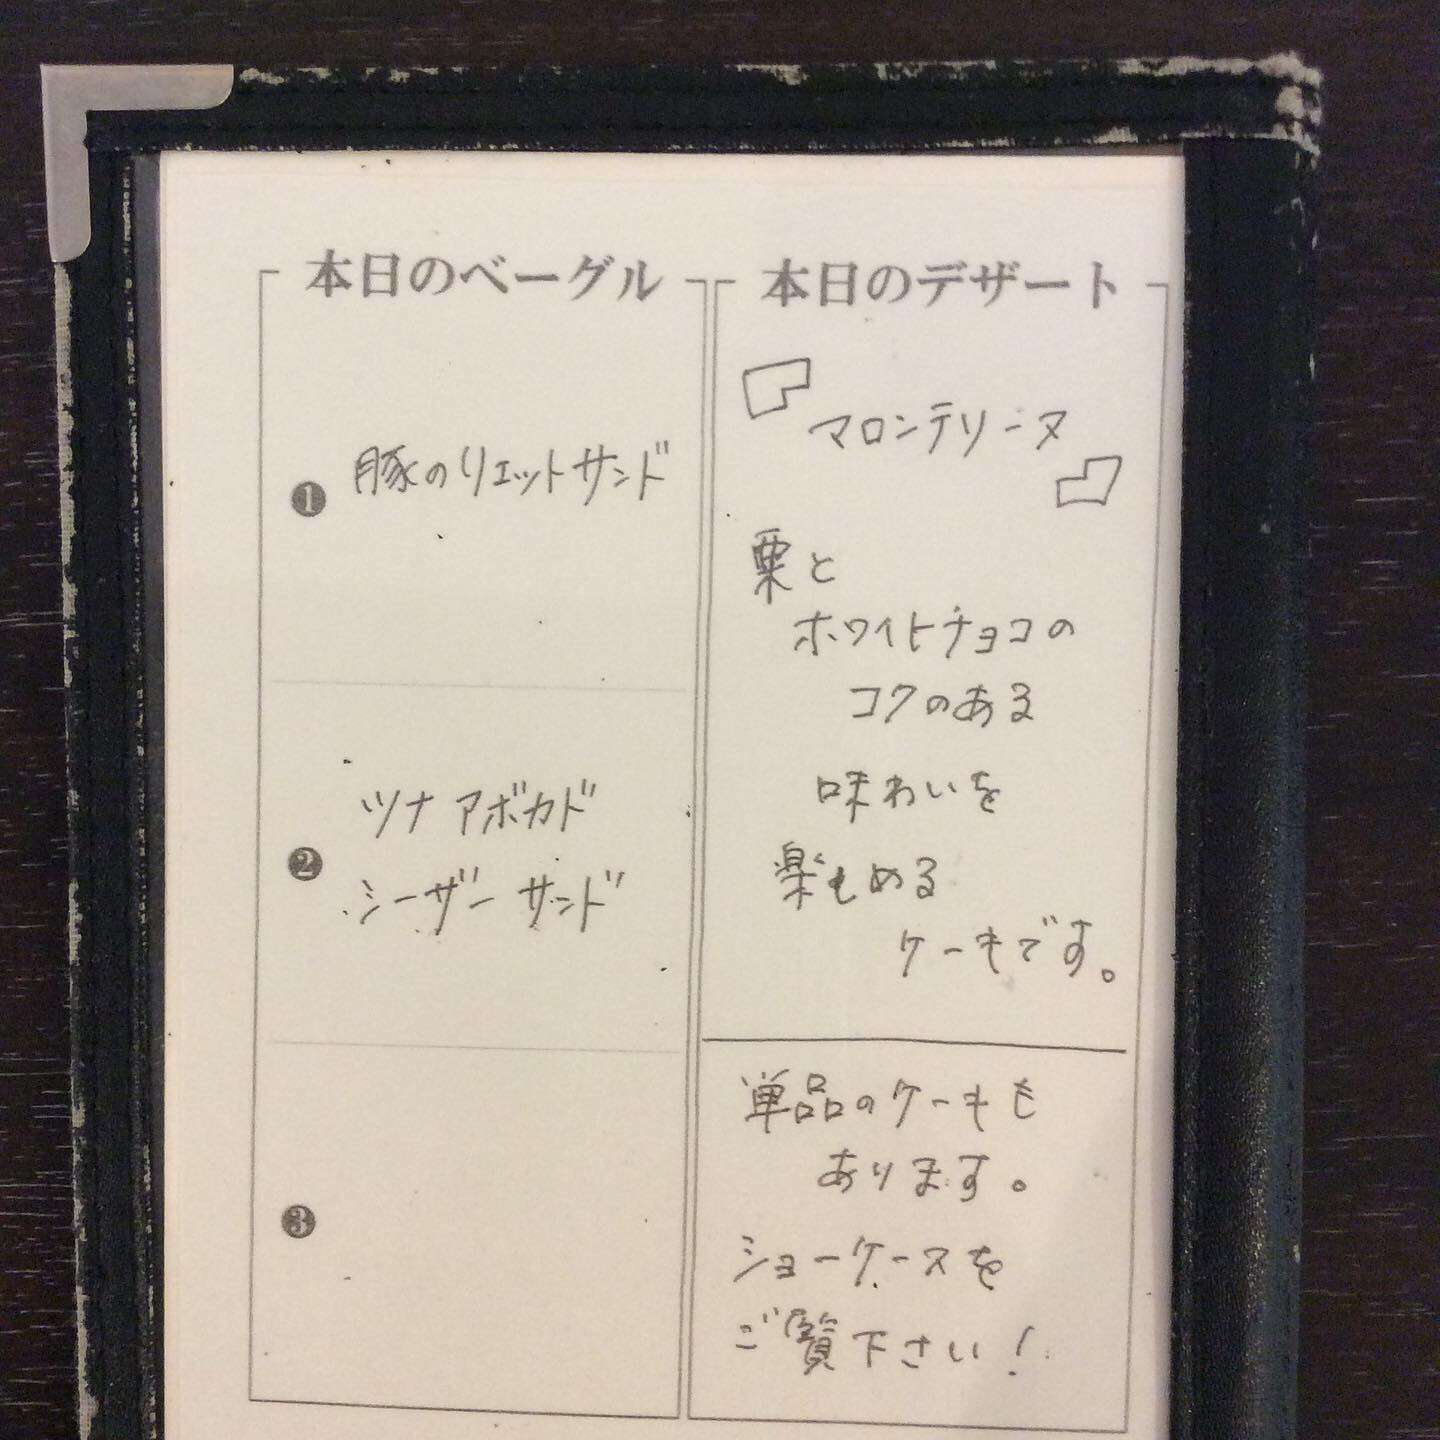 本日のベーグル
❶ 豚のリエットサンド
❷ ツナアボカド
シーザーサンド
❸
本日のデザート
『マロンテリーヌ』
栗と
ホワイトチョコの
コクのある
味わいを
楽しめる
ケーキです。
単品のケーキも
あります。
ショーケースを
ご覧下さい!